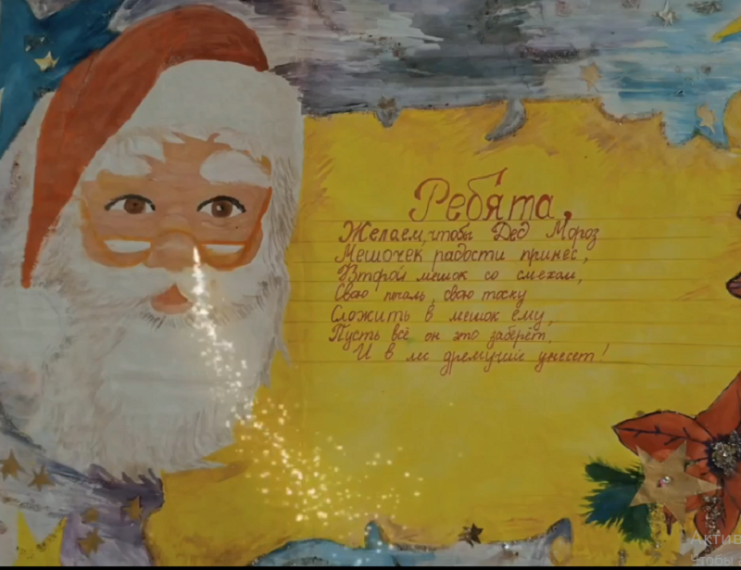 Ребята,
Желаем, чтобы Дед Мороз
Мешочек радости принес,
Второй мешок со смехом,
Свою печаль, свою тоску
Сложить в мешок ему,
Пусть всё он это заберёт,
И в лес дремучий унесет!
Актив
Чтобы